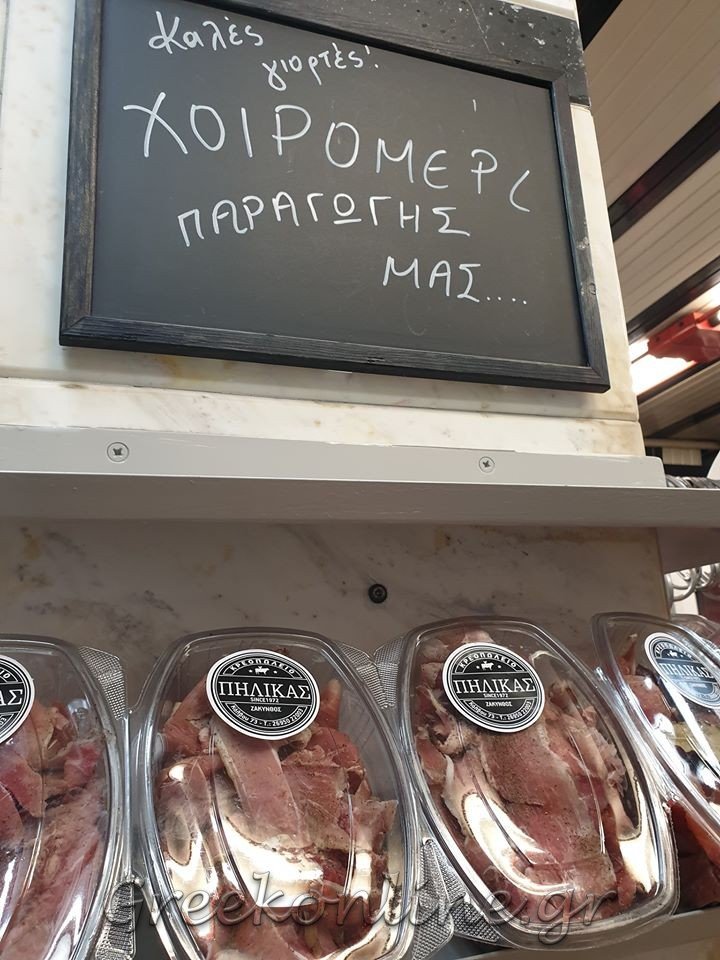 Καλές
γιορτές!
ΧΟΙΡΟΜΕΡι
ΠΑΡΑΓΩΓΗΣ
ΜΑΣ....
ΚΡΕΟΠΩΛΕΙΟ
ΠΗΛΙΚΑΣ
SINCE 1972
ΖΑΚΥΝΘΟΣ
ΚΡΕΟΠΩΛΕΙΟ
ΠΗΛΙΚΑΣ
SINCE 1972
ΖΑΚΥΝΘΟΣ
ΠΗΛΙΚΑΣ
Greekonline.gr